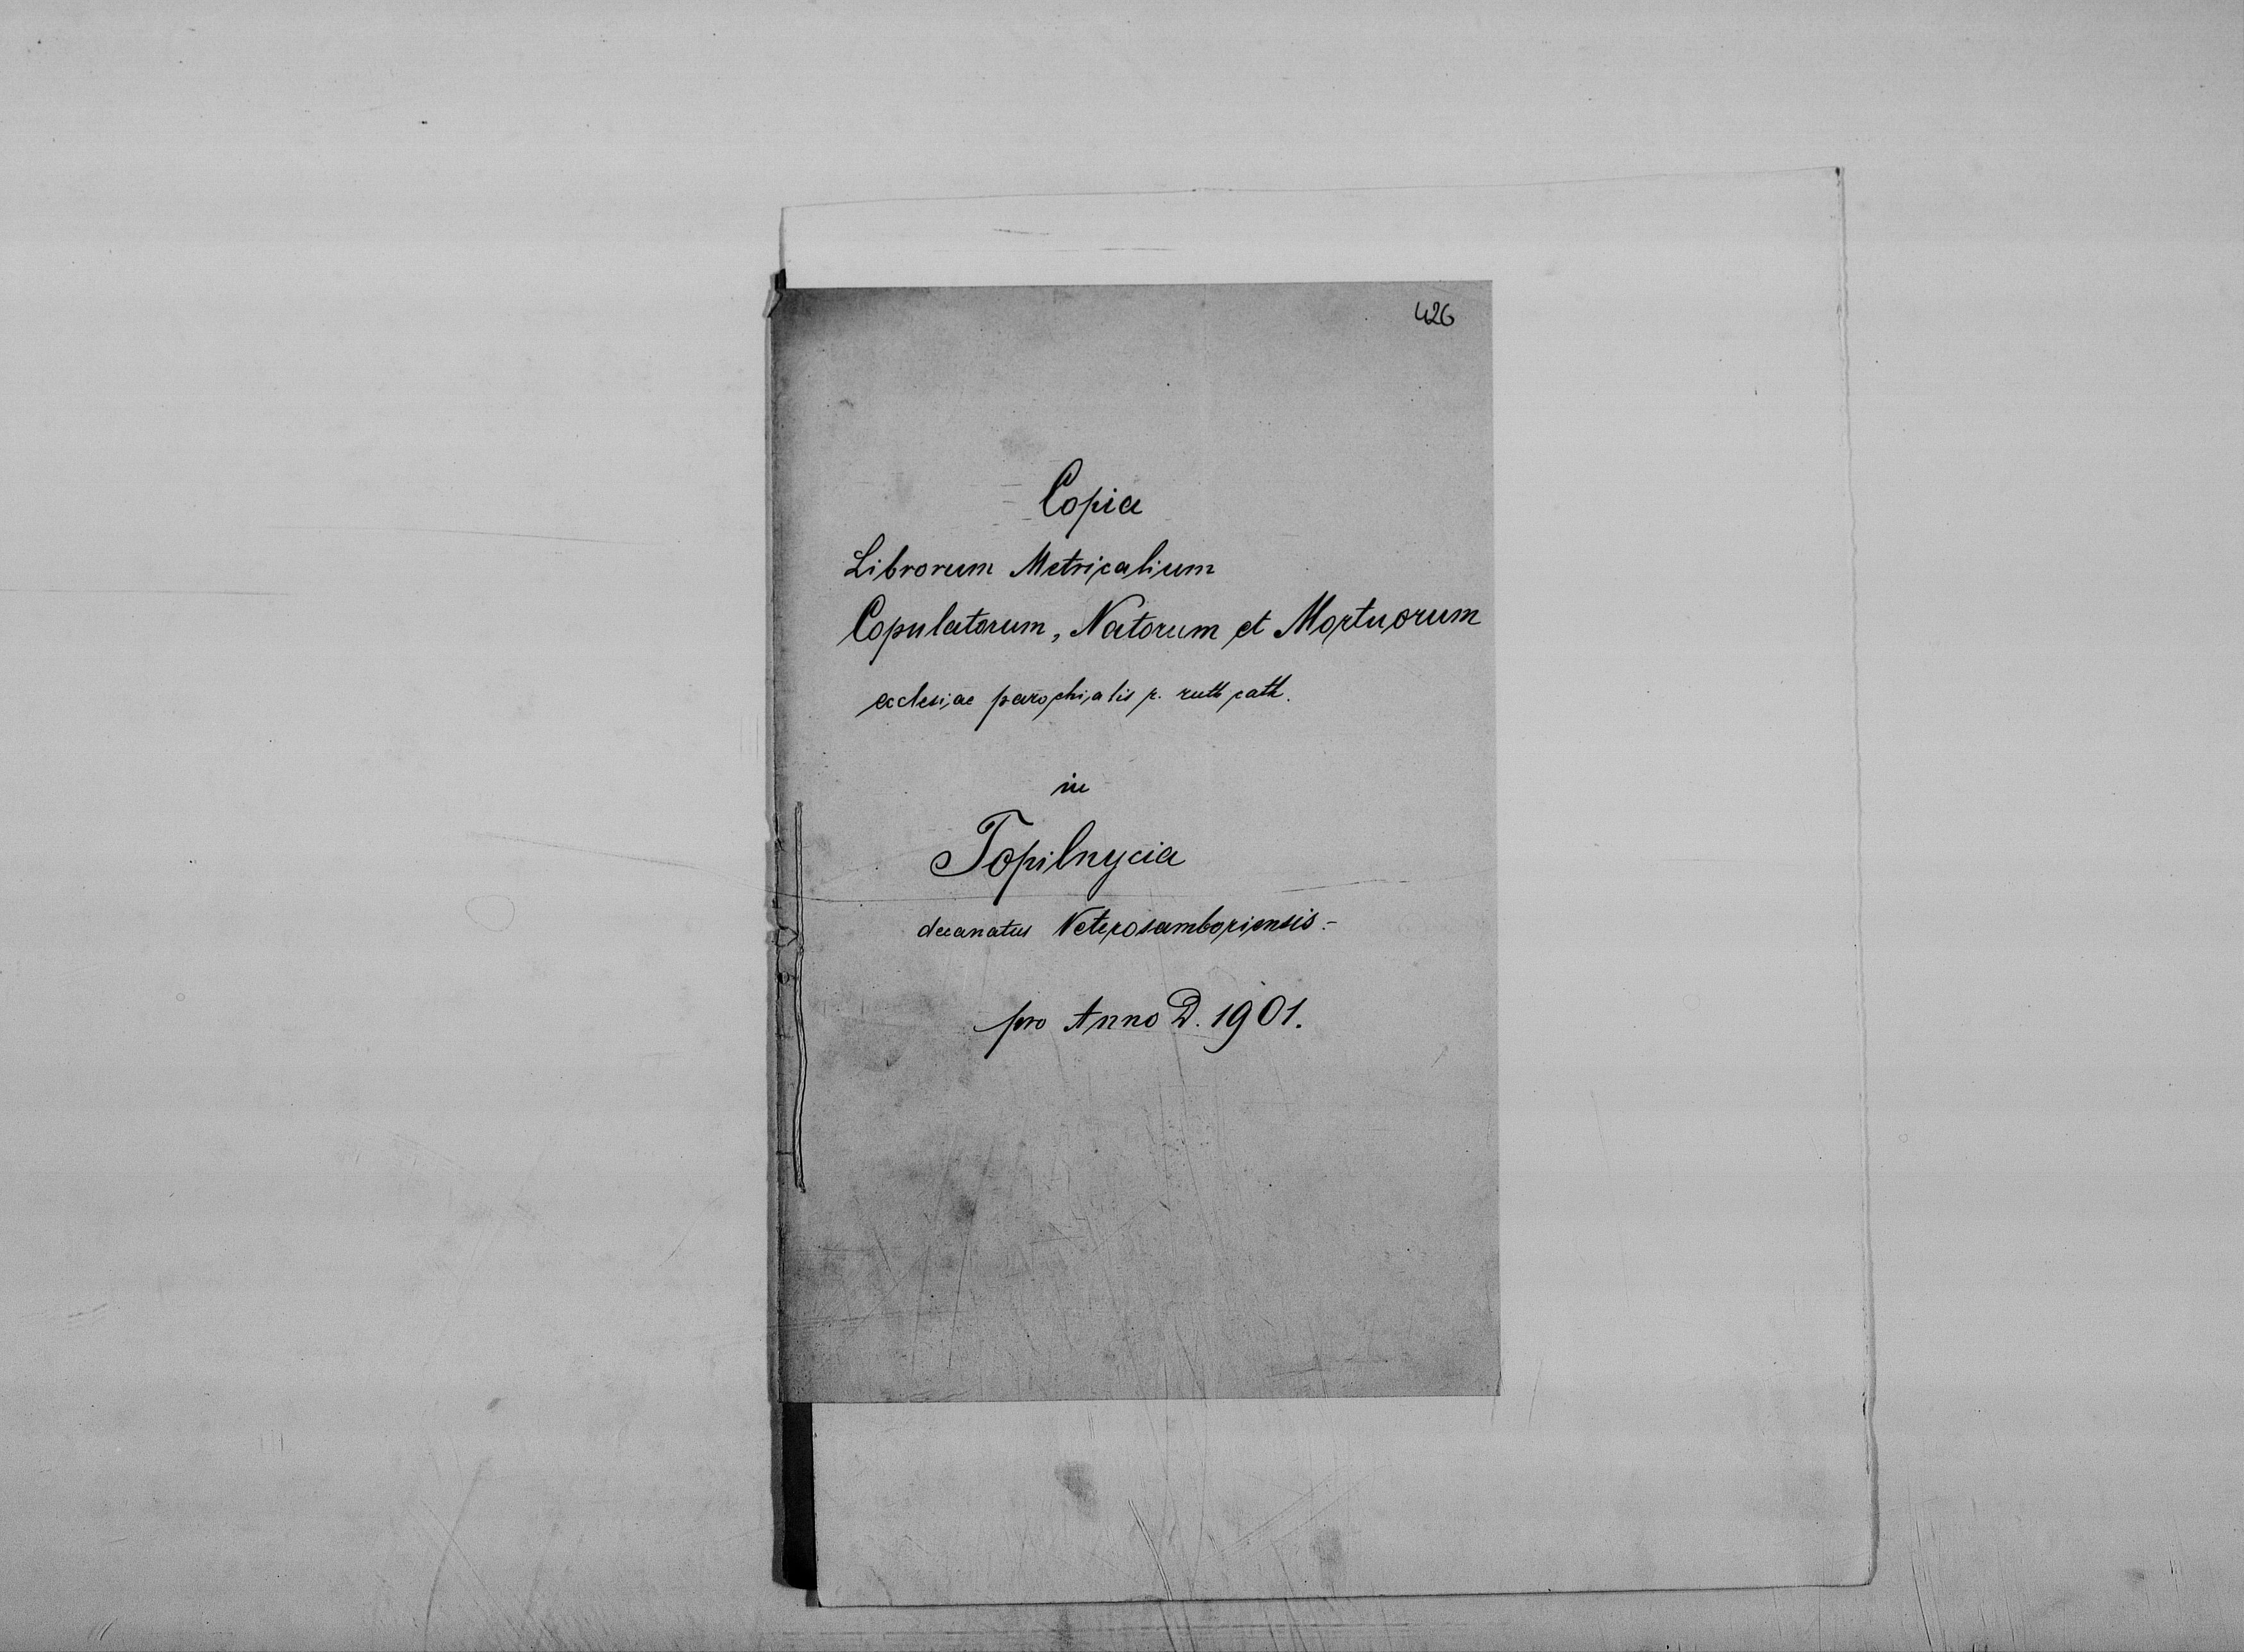 426
Copia
Librorum Metricalium
Copulatorum, Natorum et Mortuorum
ecclesiae parochialis r. ruth cath.
in
Topilnycia
decanatus Veterosamboriensis.-
pro Anno D. 1901.